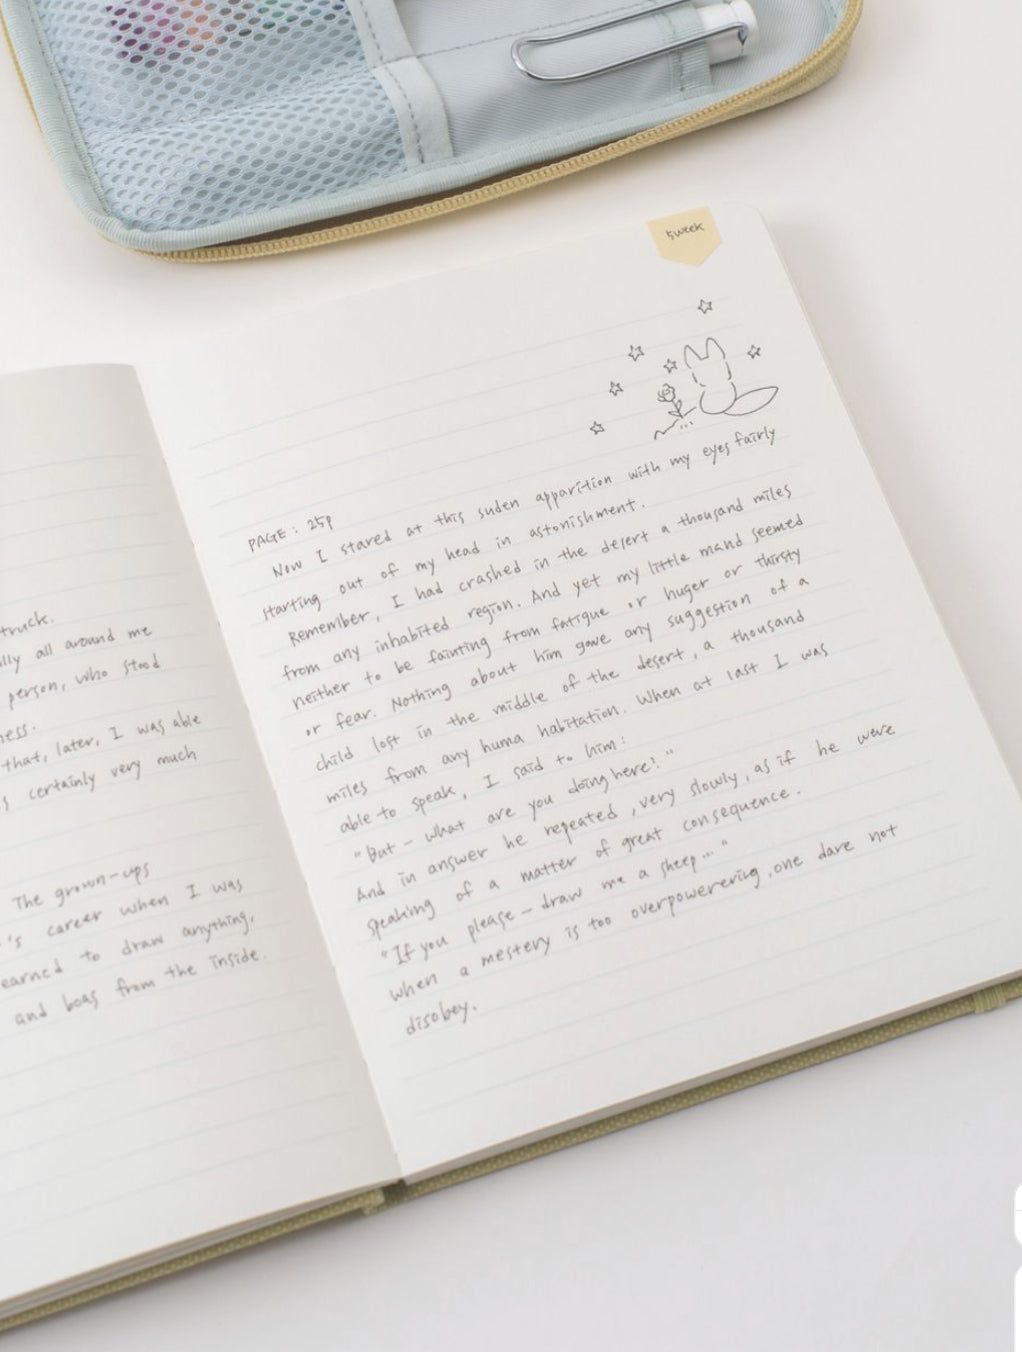 truck.
lly all around me
person, who stood
ness.
that, later, I was able
s certainly very much
The grown-ups
's career when I was
earned to draw anything,
and boas from the inside.
5week
PAGE: 25p
Now I stared at this suden apparition with my eyes fairly
starting out of my head in astonishment.
Remember, I had crashed in the desert a thousand miles
from any inhabited region. And yet my little mand seemed
neither to be fainting from fatigue or huger or thirsty
or fear. Nothing about him gave any suggestion of a
child lost in the middle of the desert, a thousand
miles from any huma habitation. When at last I was
able to speak, I said to him:
"But - what are you doing here?"
And in answer he repeated, very slowly, as if he were
speaking of a matter of great consequence.
"If you please - draw me a sheep..."
When a mestery is too overpowerering, one dare not
disobey.